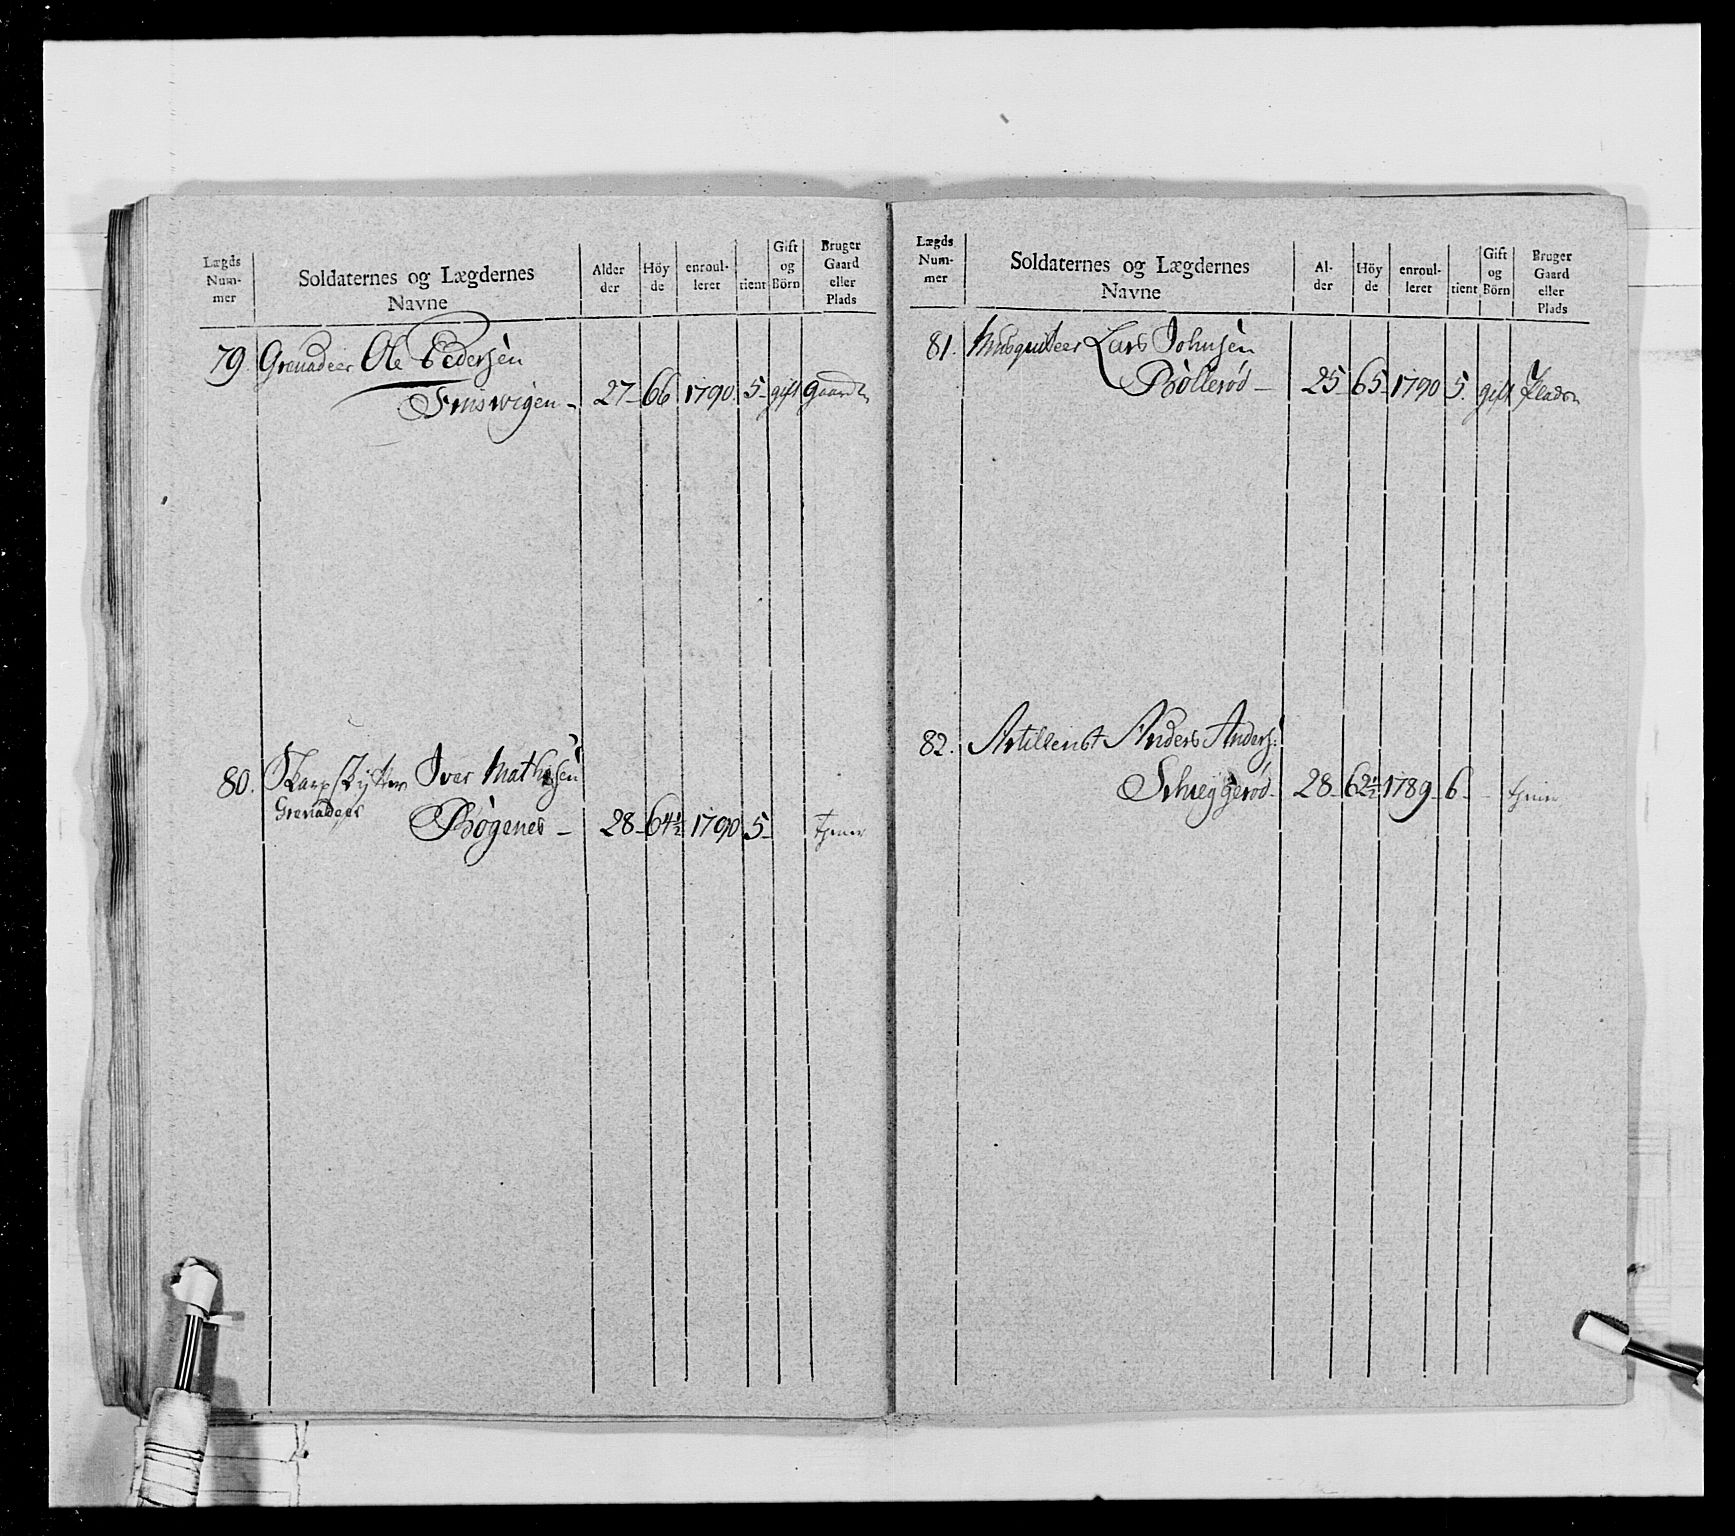 Lægds Num- mer
Soldaternes og Lægdernes Navne
Alder der
Höy de
enroul- leret
tient
Gift og Börn
Bruger Gaard eller Plads
79. Grenadeer Ole Pedersen
Friiswigen - 27 - 66 1790. 5 - gift gaarden
80. Skarpskytter Iver Mathisen
Grenadeer
Bøgenes - 28 - 64½ 1790 5 - tjener
Lægds Num- mer
Soldaternes og Lægdernes Navne
Al- der
Höy de
enroul- leret
tient
Gift og Börn
Bruger Gaard eller Plads
81. Musqueteer Lars Johnsen
Bøllerød - 25 - 65 - 1790 5. gift Pladsen
82. Artillerist Anders Anders:
Schieggerød - 28 - 62½ 1789 - 6 - - tjener